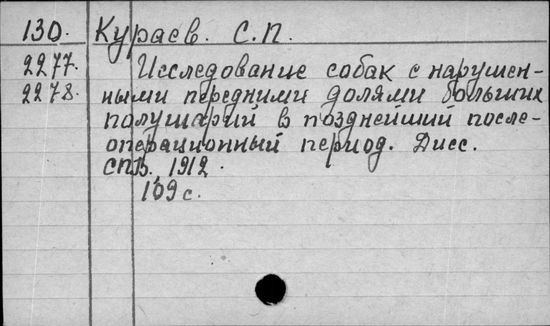 130. Кураев. С.П.
2277. Исследование собак с нарушен-
2278. ными передними долями больших
полушарий в позднейший после-
операционный период. Дисс.
СПБ, 1912.
109 с.